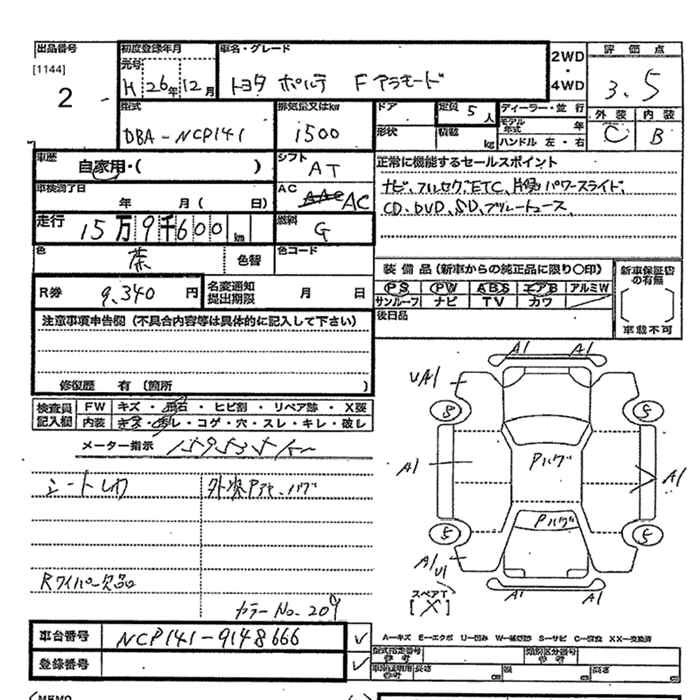 出品番号 初度登録年月 車名・グレード 2WD・4WD 評価点
[1144] 元号 H 26年 12月 トヨタ ポルテ F アラモード 3.5
2 外装 内装
型式 排気量又はkw ドア 定員 5人 ディーラー・並行 C B
DBA-NCP141 1500 形状 積載 kg モデル年式 年
ハンドル 左・右
車歴 自家用・( ) シフト AT 正常に機能するセールスポイント
車検満了日 年 月( 日) AC AC ナビ、フルセグ、ETC、片側パワースライド、
走行 15万9千600km 燃料 G CD、DVD、SD、ブルートゥース、
色 茶 色替 色コード
装備品(新車からの純正品に限り〇印) 新車保証書の有無
R券 9,340円 名変通知提出期限 月 日 PS PW ABS エアB アルミW
サンルーフ ナビ TV カワ
注意事項申告欄(不具合内容等は具体的に記入して下さい) 後日品 車載不可
修復歴 有(箇所 )
検査員記入欄 FW キズ・飛石・ヒビ割・リペア跡・X要
内装 キズ・汚レ・コゲ・穴・スレ・キレ・破レ
メーター指示 159535km
A1 A1
UA1
8 5
A1 Pハゲ A1
Pハゲ
5 5
A1 U1
A1 A1
スペアT
[X]
シートレイワ
Rワイパー欠品
カラーNo.209
車台番号 NCP141-9148666 ✓
登録番号 ✓
A-キズ E-エクボ U-凹み W-補修跡 S-サビ C-腐食 XX-交換済
型式指定番号 参考 類別区分番号 参考
長さ cm 幅 cm 高さ cm
MEMO